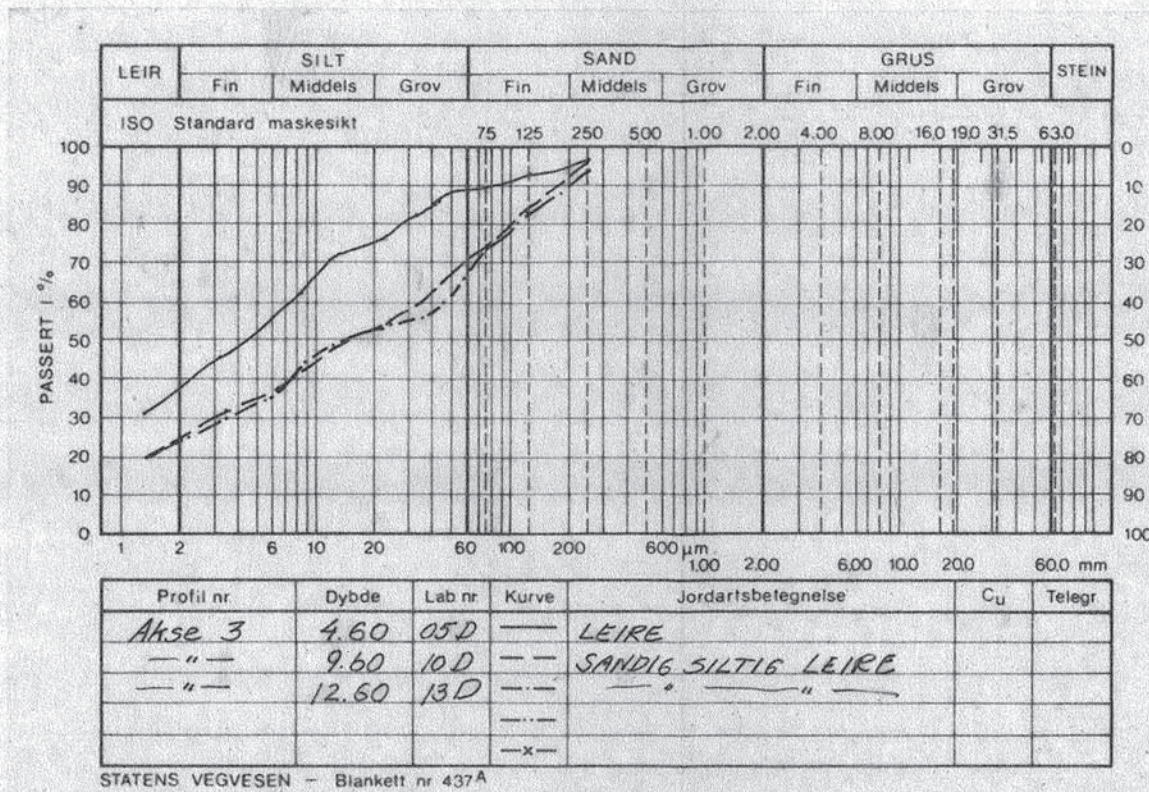 LEIR SILT SAND GRUS STEIN
Fin Middels Grov Fin Middels Grov Fin Middels Grov
ISO Standard maskesikt 75 125 250 500 1.00 2.00 4.00 8.00 16.0 19.0 31.5 63.0
100 0
90 10
80 20
70 30
60 40
50 50
40 60
30 70
20 80
10 90
0 100
PASSERT I %
1 2 6 10 20 60 100 200 600 µm
1.00 2.00 6.00 10.0 20.0 60.0 mm
Profil nr. Dybde Lab nr. Kurve Jordartsbetegnelse Cu Telegr.
Akse 3 4.60 05D LEIRE
— " — 9.60 10D SANDIG SILTIG LEIRE
— " — 12.60 13D — " — " —
—x—
STATENS VEGVESEN – Blankett nr 437A